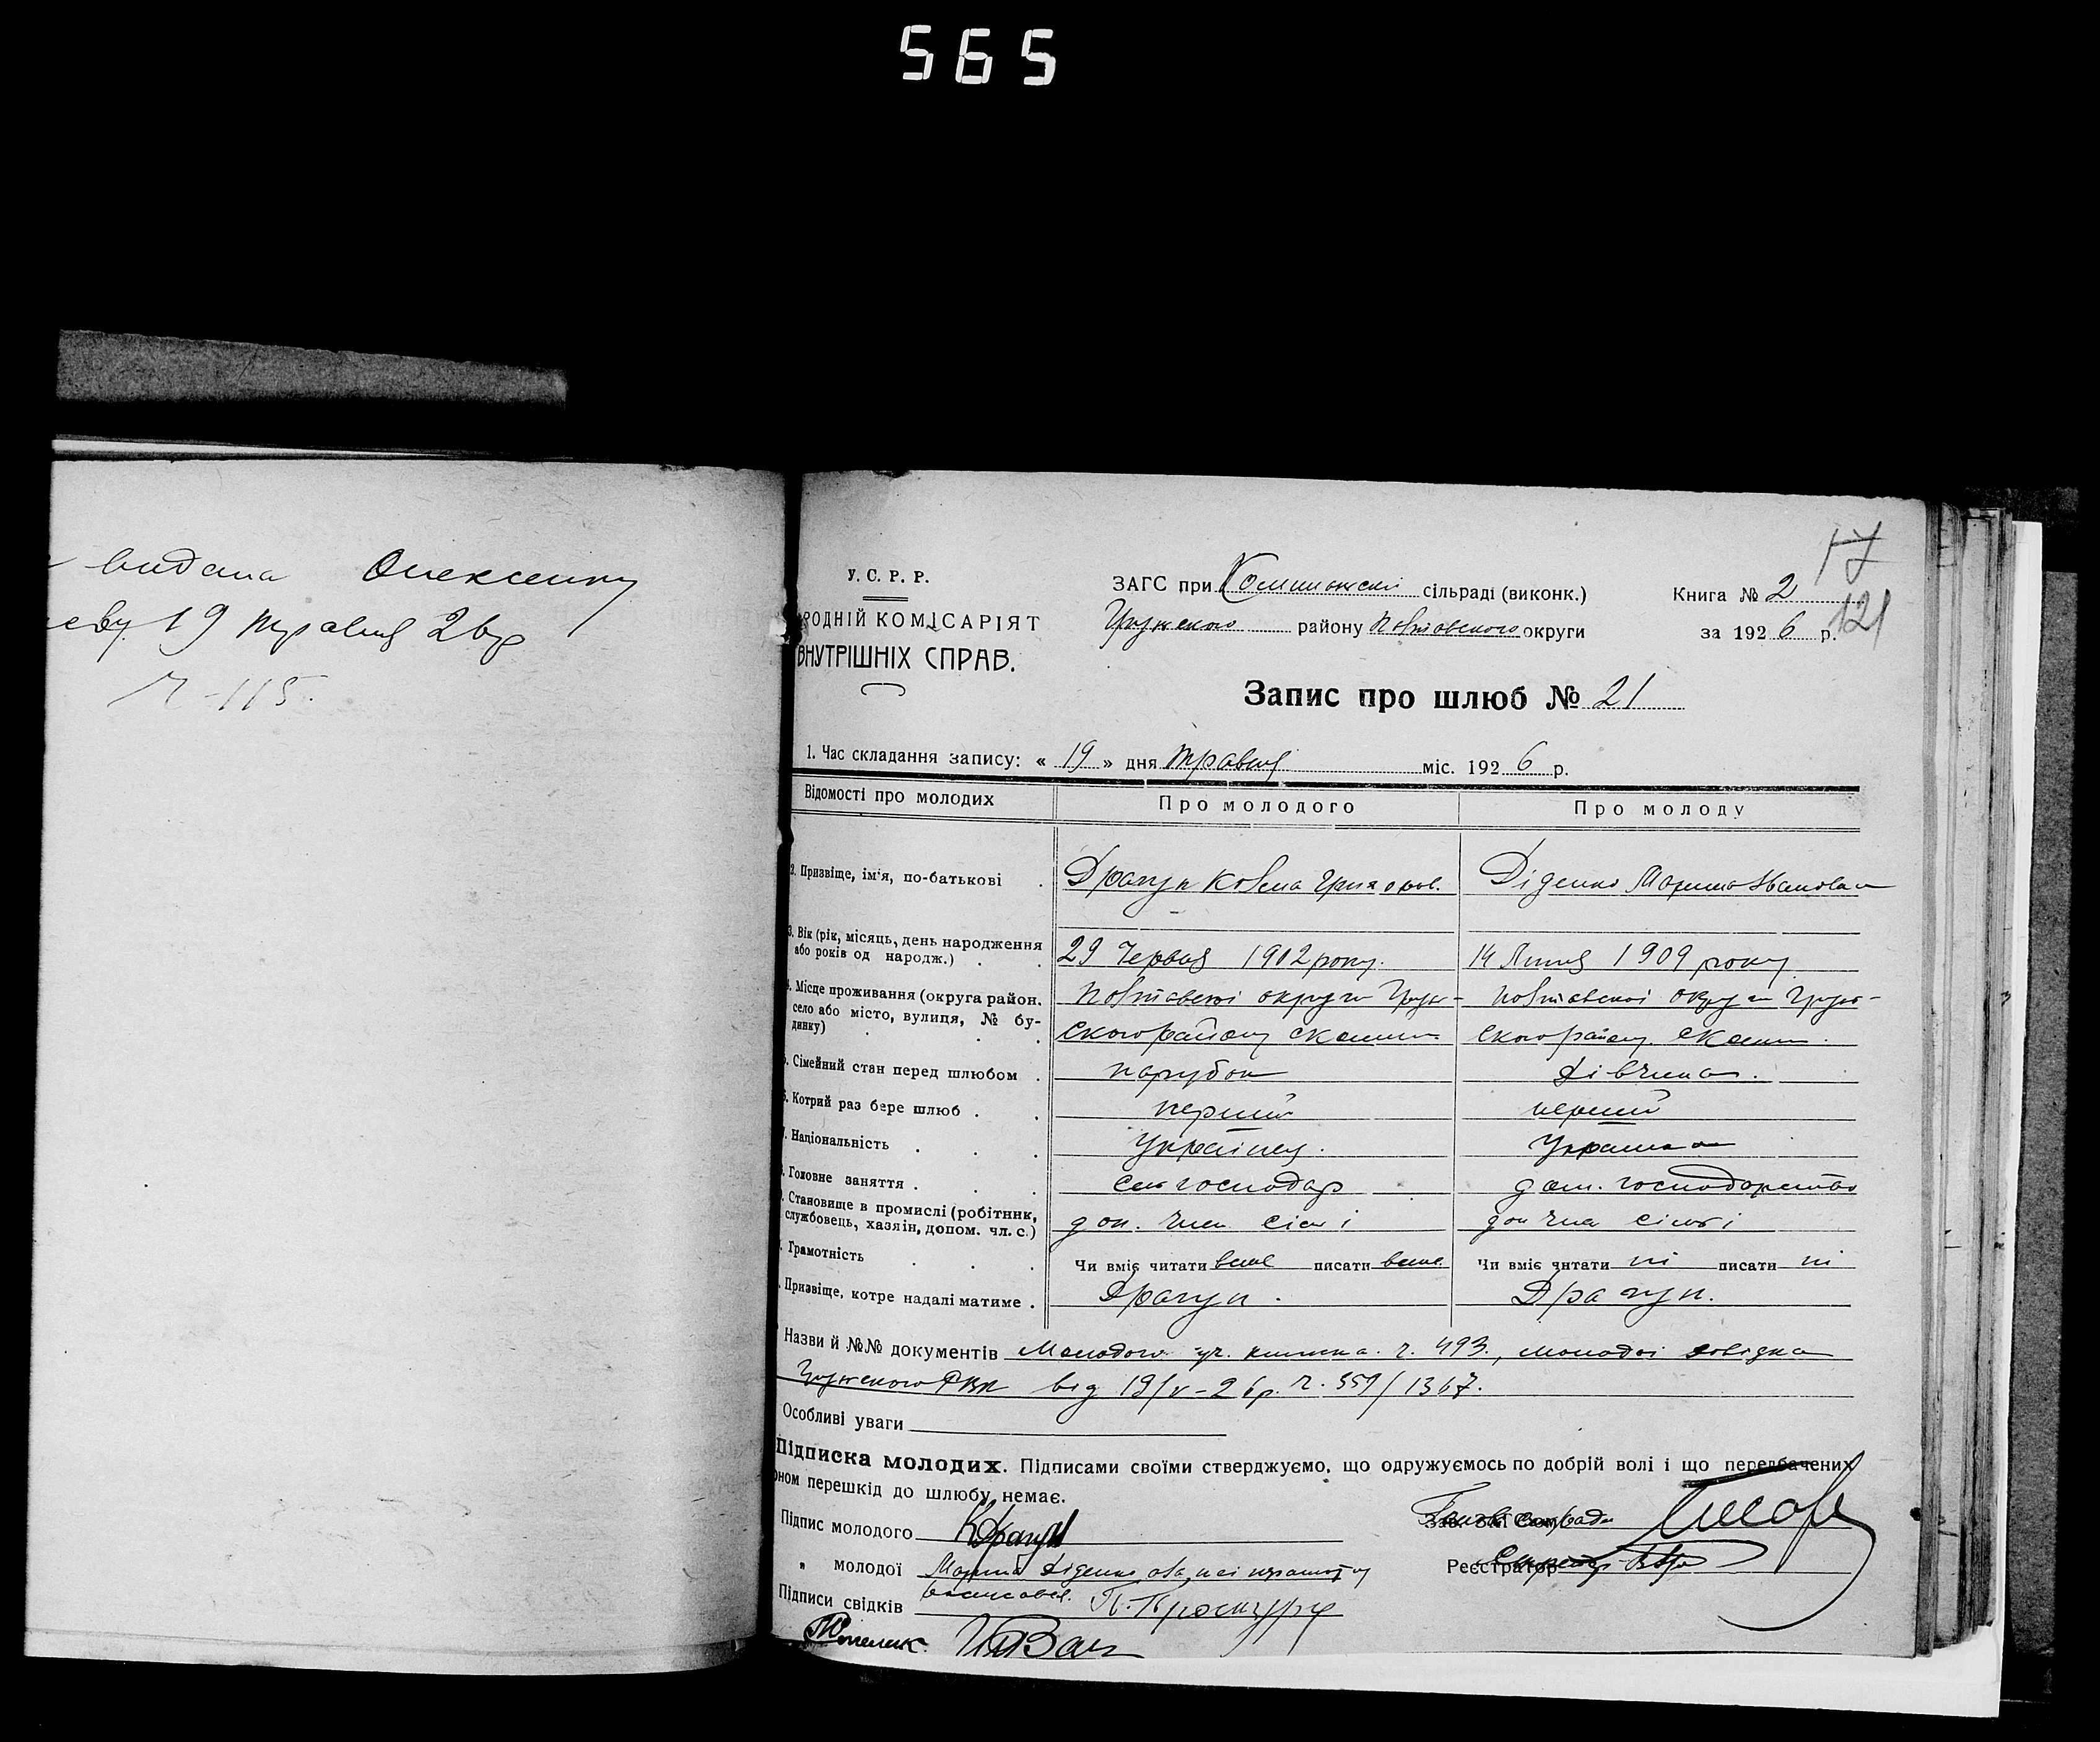 565
видана Олексенку
19 травня 26 р
Ч-115.
17
121
У. С. Р. Р.
РОДНІЙ КОМІСАРІЯТ
ВНУТРІШНІХ СПРАВ.
ЗАГС при сільраді (виконк.) Книга № 2
Грунського району Полтавського округи за 1926 р.
Запис про шлюб № 21
1. Час складання запису: « 19 » дня травня міс. 1926 р.
Відомості про молодих Про молодого Про молоду
2. Призвіще, ім'я, по-батькові Драгун Козьма Григоров. Діденко Марина Івановна
3. Вік (рік, місяць, день народження або років од народж.) 29 Червня 1902 року. 14 Липня 1909 року
Місце проживання (округа район. село або місто, вулиця, № будинку) Полтавської округи Грун- Полтавської округи Грун-
ського району ського району
Сімейний стан перед шлюбом парубок дівчина.
Котрий раз бере шлюб перший перший
Національність Українец. Українка
Головне заняття сель господар дом. господарство
Становище в промислі (робітник, службовець, хазяїн, допом. чл. с.) доп. член сім'ї доп член сім'ї
Грамотність Чи вміє читати вміє писати вміє. Чи вміє читати ні писати ні
Призвіще, котре надалі матиме Драгун. Драгун.
Назви й №№ документів Молодого книжка. ч. 493., молодої довідка
Грунського РВК від 19/V-26 р. ч. 559/1367.
Особливі уваги
Підписка молодих. Підписами своїми стверджуємо, що одружуємось по добрій волі і що передбачених
ном перешкід до шлюбу немає.
Підпис молодого КДрагун
" молодої Марина Діденко
Реєстратор
Підписи свідків П. Проскура